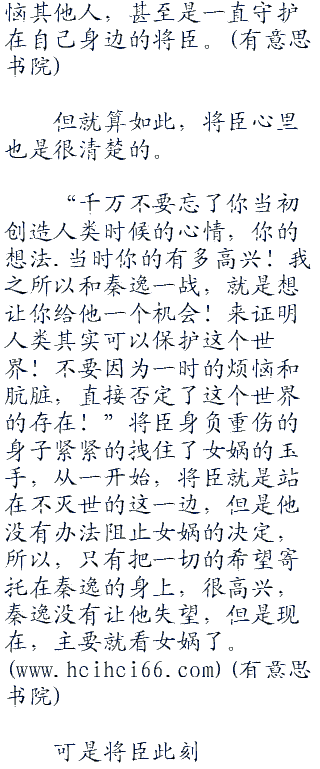 恼其他人，甚至是一直守护
在自己身边的将臣。(有意思
书院)
但就算如此，将臣心里
也是很清楚的。
“千万不要忘了你当初
创造人类时候的心情，你的
想法.当时你的有多高兴！我
之所以和秦逸一战，就是想
让你给他一个机会！来证明
人类其实可以保护这个世
界！不要因为一时的烦恼和
肮脏，直接否定了这个世界
的存在！”将臣身负重伤的
身子紧紧的拽住了女娲的玉
手，从一开始，将臣就是站
在不灭世的这一边，但是他
没有办法阻止女娲的决定，
所以，只有把一切的希望寄
托在秦逸的身上，很高兴，
秦逸没有让他失望，但是现
在，主要就看女娲了。
(www.hcihci66.com)(有意思
书院)
可是将臣此刻